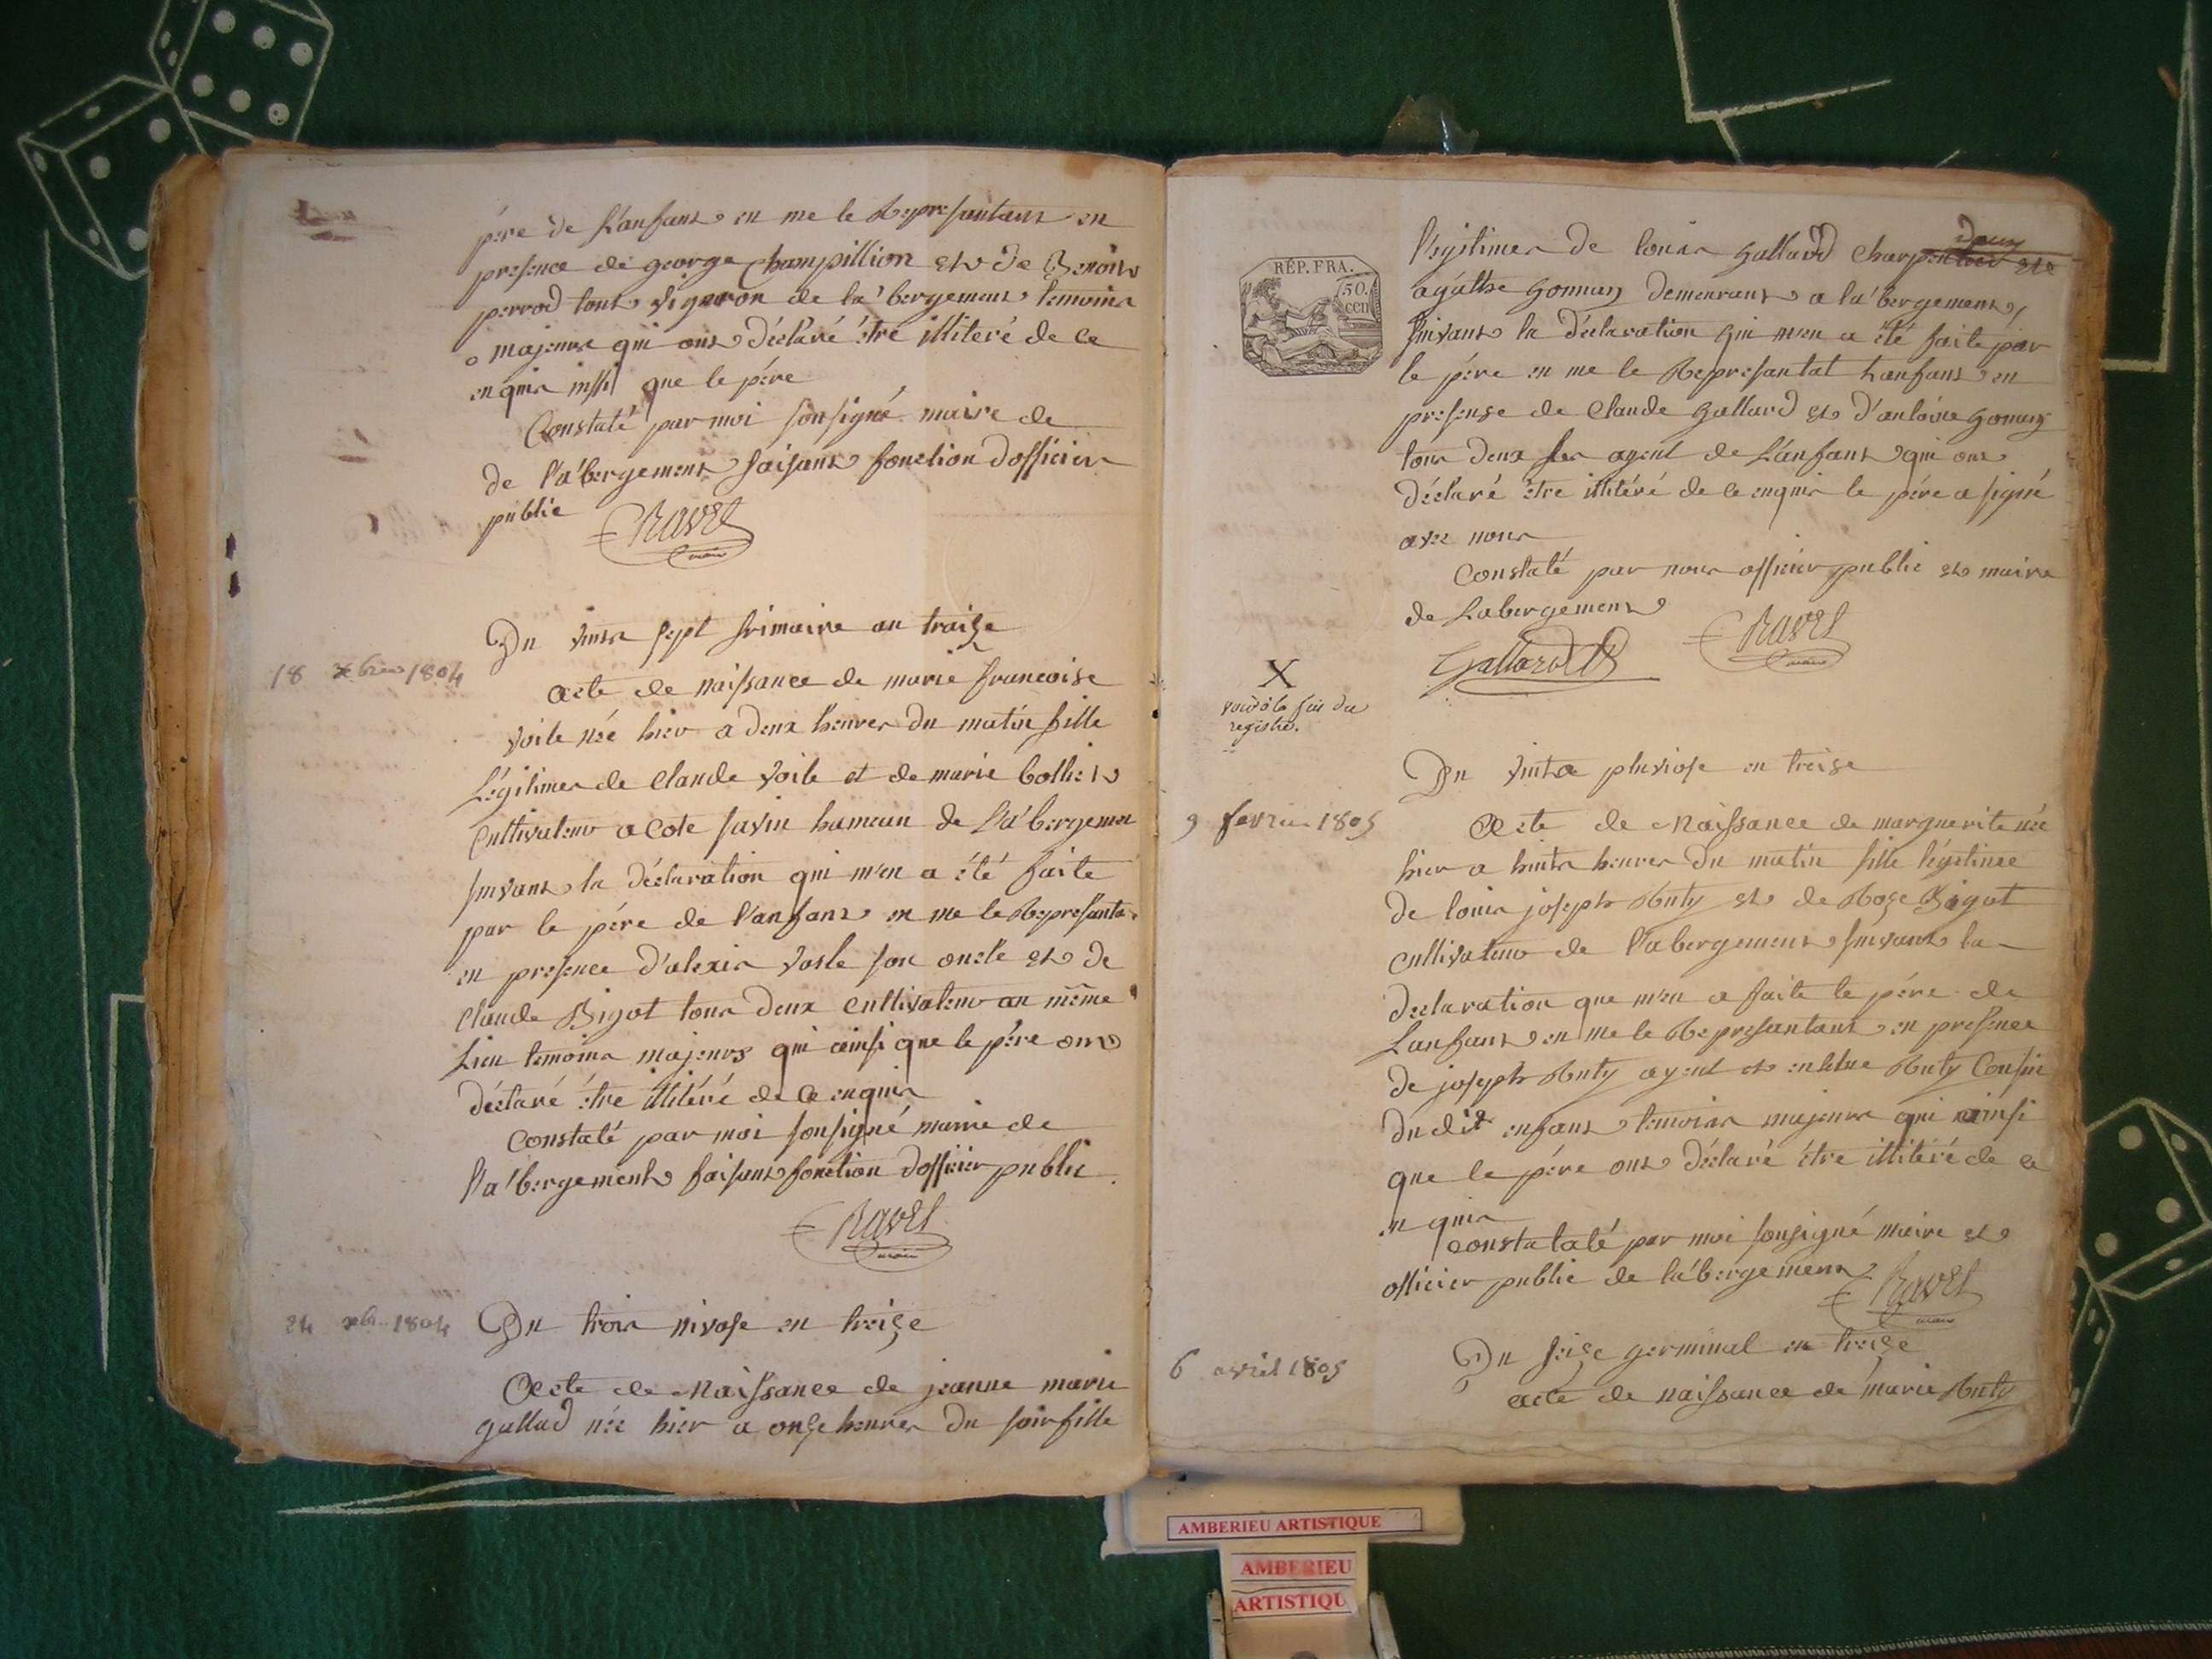 père de L'anfant en me le Represantant en
presence de george Champillion et de Benoit
perrod tout vigneron de la'bergement temoins
majeurs qui ont déclaré être illiteré de ce
enquis insfi que le père
Constaté par moi sousigné maire de
de l'a'bergement faisant fonction dofficier
public
Ravet
maire
Du vints sept frimaire an traize
18 xbre 1804
acte de naissance de marie francoise
voile née hier a deux heures du matin fille
Légitimes de Claude voile et de marie bolliet
Cultivateur a Cote savin hameau de l'a'bergemen
suivant la déclaration qui m'en a été faite
par le père de l'anfant en me le Represanta
en presence d'alexis vosle son oncle et de
Claude Bigot tous deux Cultivateur au même
Lieu temoins majeurs qui ainsi que le père ont
déclaré être illitéré de ce enquis
Constaté par moi sousigné maire de
l'a'bergement faisant fonction dofficier public.
Ravet
maire
24 xbre 1804
Du trois nivose en treize
Acte de Naissance de jeanne marie
gallad née hier a onze heures du soir fille
RÉP. FRA.
50.
cen
légitimes de louis gallard Charpentier et
agathe gonnuy demeurant a la'bergement,
suivant la déclaration qui m'en a été faite par
le père en me le Represantat Lanfant en
presense de Claude gallard et d'antoine gonnuy
tous deux ayeul de L'anfant qui ont
déclaré être illitéré de ce enquis le père a signé
avec nous
Constaté par nous officier public et maire
de Labergement
Ravet
maire
Gallard
X
voir à la fin du
registre.
Du vints pluviose en treize
9 fevrier 1805
Acte de Naissance de marguerite née
hier a huits heures du matin fille légitimee
de louis joseph Ruty et de Roze Bigot
cultivateur de l'abergement suivant la
declaration que m'en a faite le père de
Lanfant en me le Represantant en presence
de joseph Ruty ayeul et Ruty Cousin
du dit enfant temoins majeurs qui ainsi
que le père ont déclaré être illitéré de ce
en quis
constataté par moi sousigné maire et
officier public de la'bergement
Ravet
maire
6 avril 1805
Du seize germinal en treize
acte de naissance de marie Ruty
AMBERIEU ARTISTIQUE
AMBERIEU
ARTISTIQU